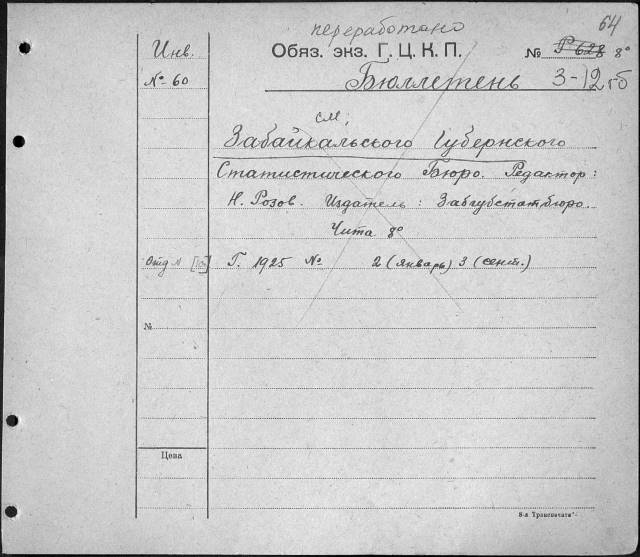 переработано
64
Инв.
Обяз. экз. Г. Ц. К. П. № Р 628 8°
№ 60
Бюллетень 3-12 гб
см.
Забайкальского Губернского
Статистического Бюро. Редактор:
Н. Розов. Издатель: Забгубстатбюро.
Чита 8°
Г. 1925 № 2 (январь) 3 (сент.)
№
Цена
8-я Транспечати"